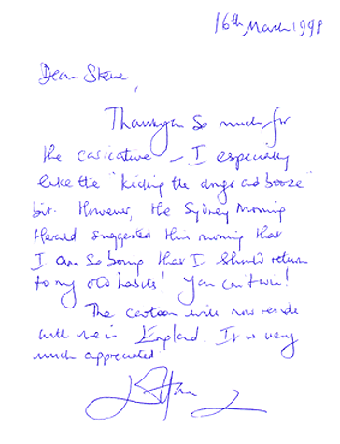 16th, March 1998
Dear Steve,
Thankyou so much for
the caricature – I especially
like the "kicking the drugs and booze"
bit. However, the Sydney Morning
Herald suggested this morning that
I am so boring that I should return
to my old habits! You can't win!
The cartoon will now reside
with me in England. It is very
much appreciated